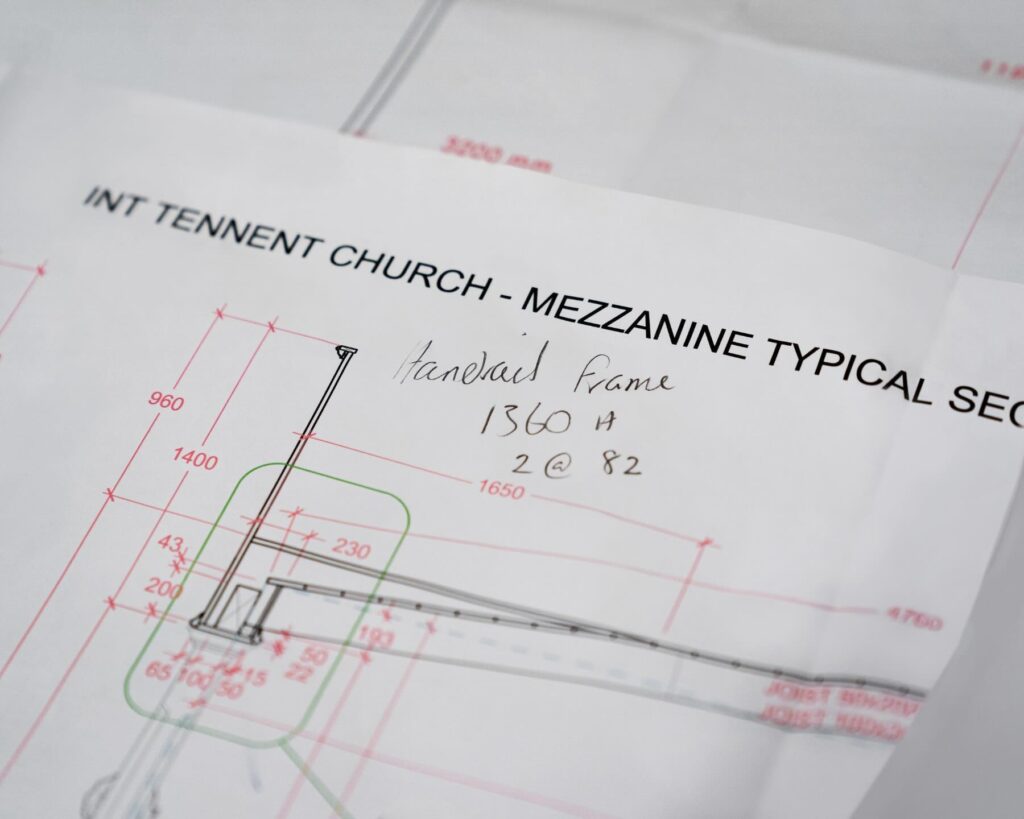 3200 mm
INT TENNENT CHURCH - MEZZANINE TYPICAL
Handrail Frame
1360 H
2 @ 82
960
1400
1650
43
230
200
4760
193
50
22
65 100 15
50